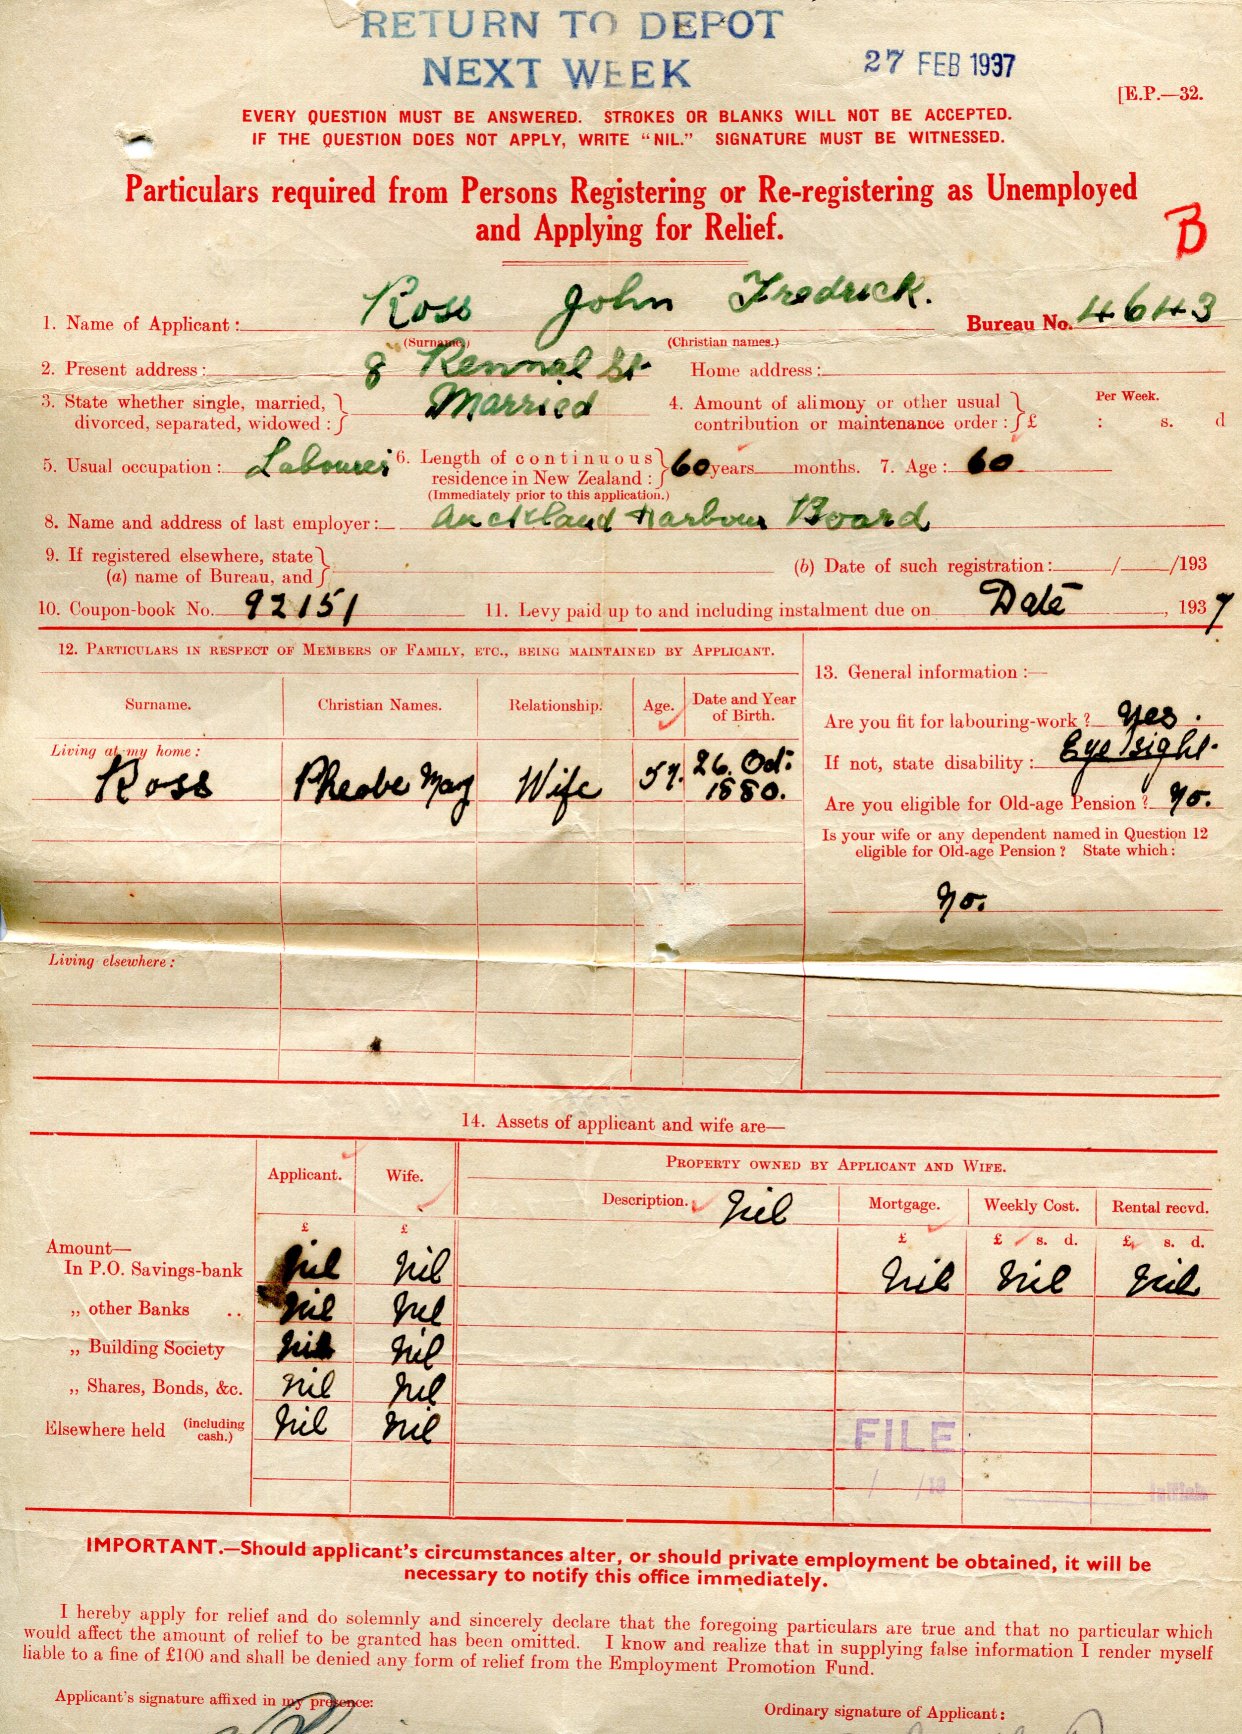 RETURN TO DEPOT
NEXT WEEK
27 FEB 1937
[E.P.—32.
EVERY QUESTION MUST BE ANSWERED. STROKES OR BLANKS WILL NOT BE ACCEPTED.
IF THE QUESTION DOES NOT APPLY, WRITE "NIL." SIGNATURE MUST BE WITNESSED.
Particulars required from Persons Registering or Re-registering as Unemployed
and Applying for Relief.
B
1. Name of Applicant: Ross John Fredrick. Bureau No. 4643
(Surname.) (Christian names.)
2. Present address: 8 Kennal St Home address:
3. State whether single, married, divorced, separated, widowed: Married
4. Amount of alimony or other usual contribution or maintenance order: Per Week. £ : s. d
5. Usual occupation: Labourer
6. Length of continuous residence in New Zealand: 60 years months. 7. Age: 60
(Immediately prior to this application.)
8. Name and address of last employer: Auckland Harbour Board
9. If registered elsewhere, state (a) name of Bureau, and
(b) Date of such registration: / /193
10. Coupon-book No. 92151 11. Levy paid up to and including instalment due on Date, 1937
12. PARTICULARS IN RESPECT OF MEMBERS OF FAMILY, ETC., BEING MAINTAINED BY APPLICANT.
Surname. Christian Names. Relationship. Age. Date and Year of Birth.
Living at my home:
Ross Pheobe May Wife 57. 26. Oct: 1880.
Living elsewhere:
13. General information:—
Are you fit for labouring-work? Yes.
If not, state disability: Eye sight.
Are you eligible for Old-age Pension? No.
Is your wife or any dependent named in Question 12
eligible for Old-age Pension? State which:
No.
14. Assets of applicant and wife are—
Applicant. Wife. PROPERTY OWNED BY APPLICANT AND WIFE.
Description. Nil Mortgage. Weekly Cost. Rental recvd.
£ £ £ £ s. d. £ s. d.
Amount—
In P.O. Savings-bank Nil Nil Nil Nil Nil
„ other Banks .. Nil Nil
„ Building Society Nil Nil
„ Shares, Bonds, &c. Nil Nil
Elsewhere held (including cash.) Nil Nil
FILE
/ /19
Initials
IMPORTANT.—Should applicant's circumstances alter, or should private employment be obtained, it will be
necessary to notify this office immediately.
I hereby apply for relief and do solemnly and sincerely declare that the foregoing particulars are true and that no particular which
would affect the amount of relief to be granted has been omitted. I know and realize that in supplying false information I render myself
liable to a fine of £100 and shall be denied any form of relief from the Employment Promotion Fund.
Applicant's signature affixed in my presence:
Ordinary signature of Applicant: